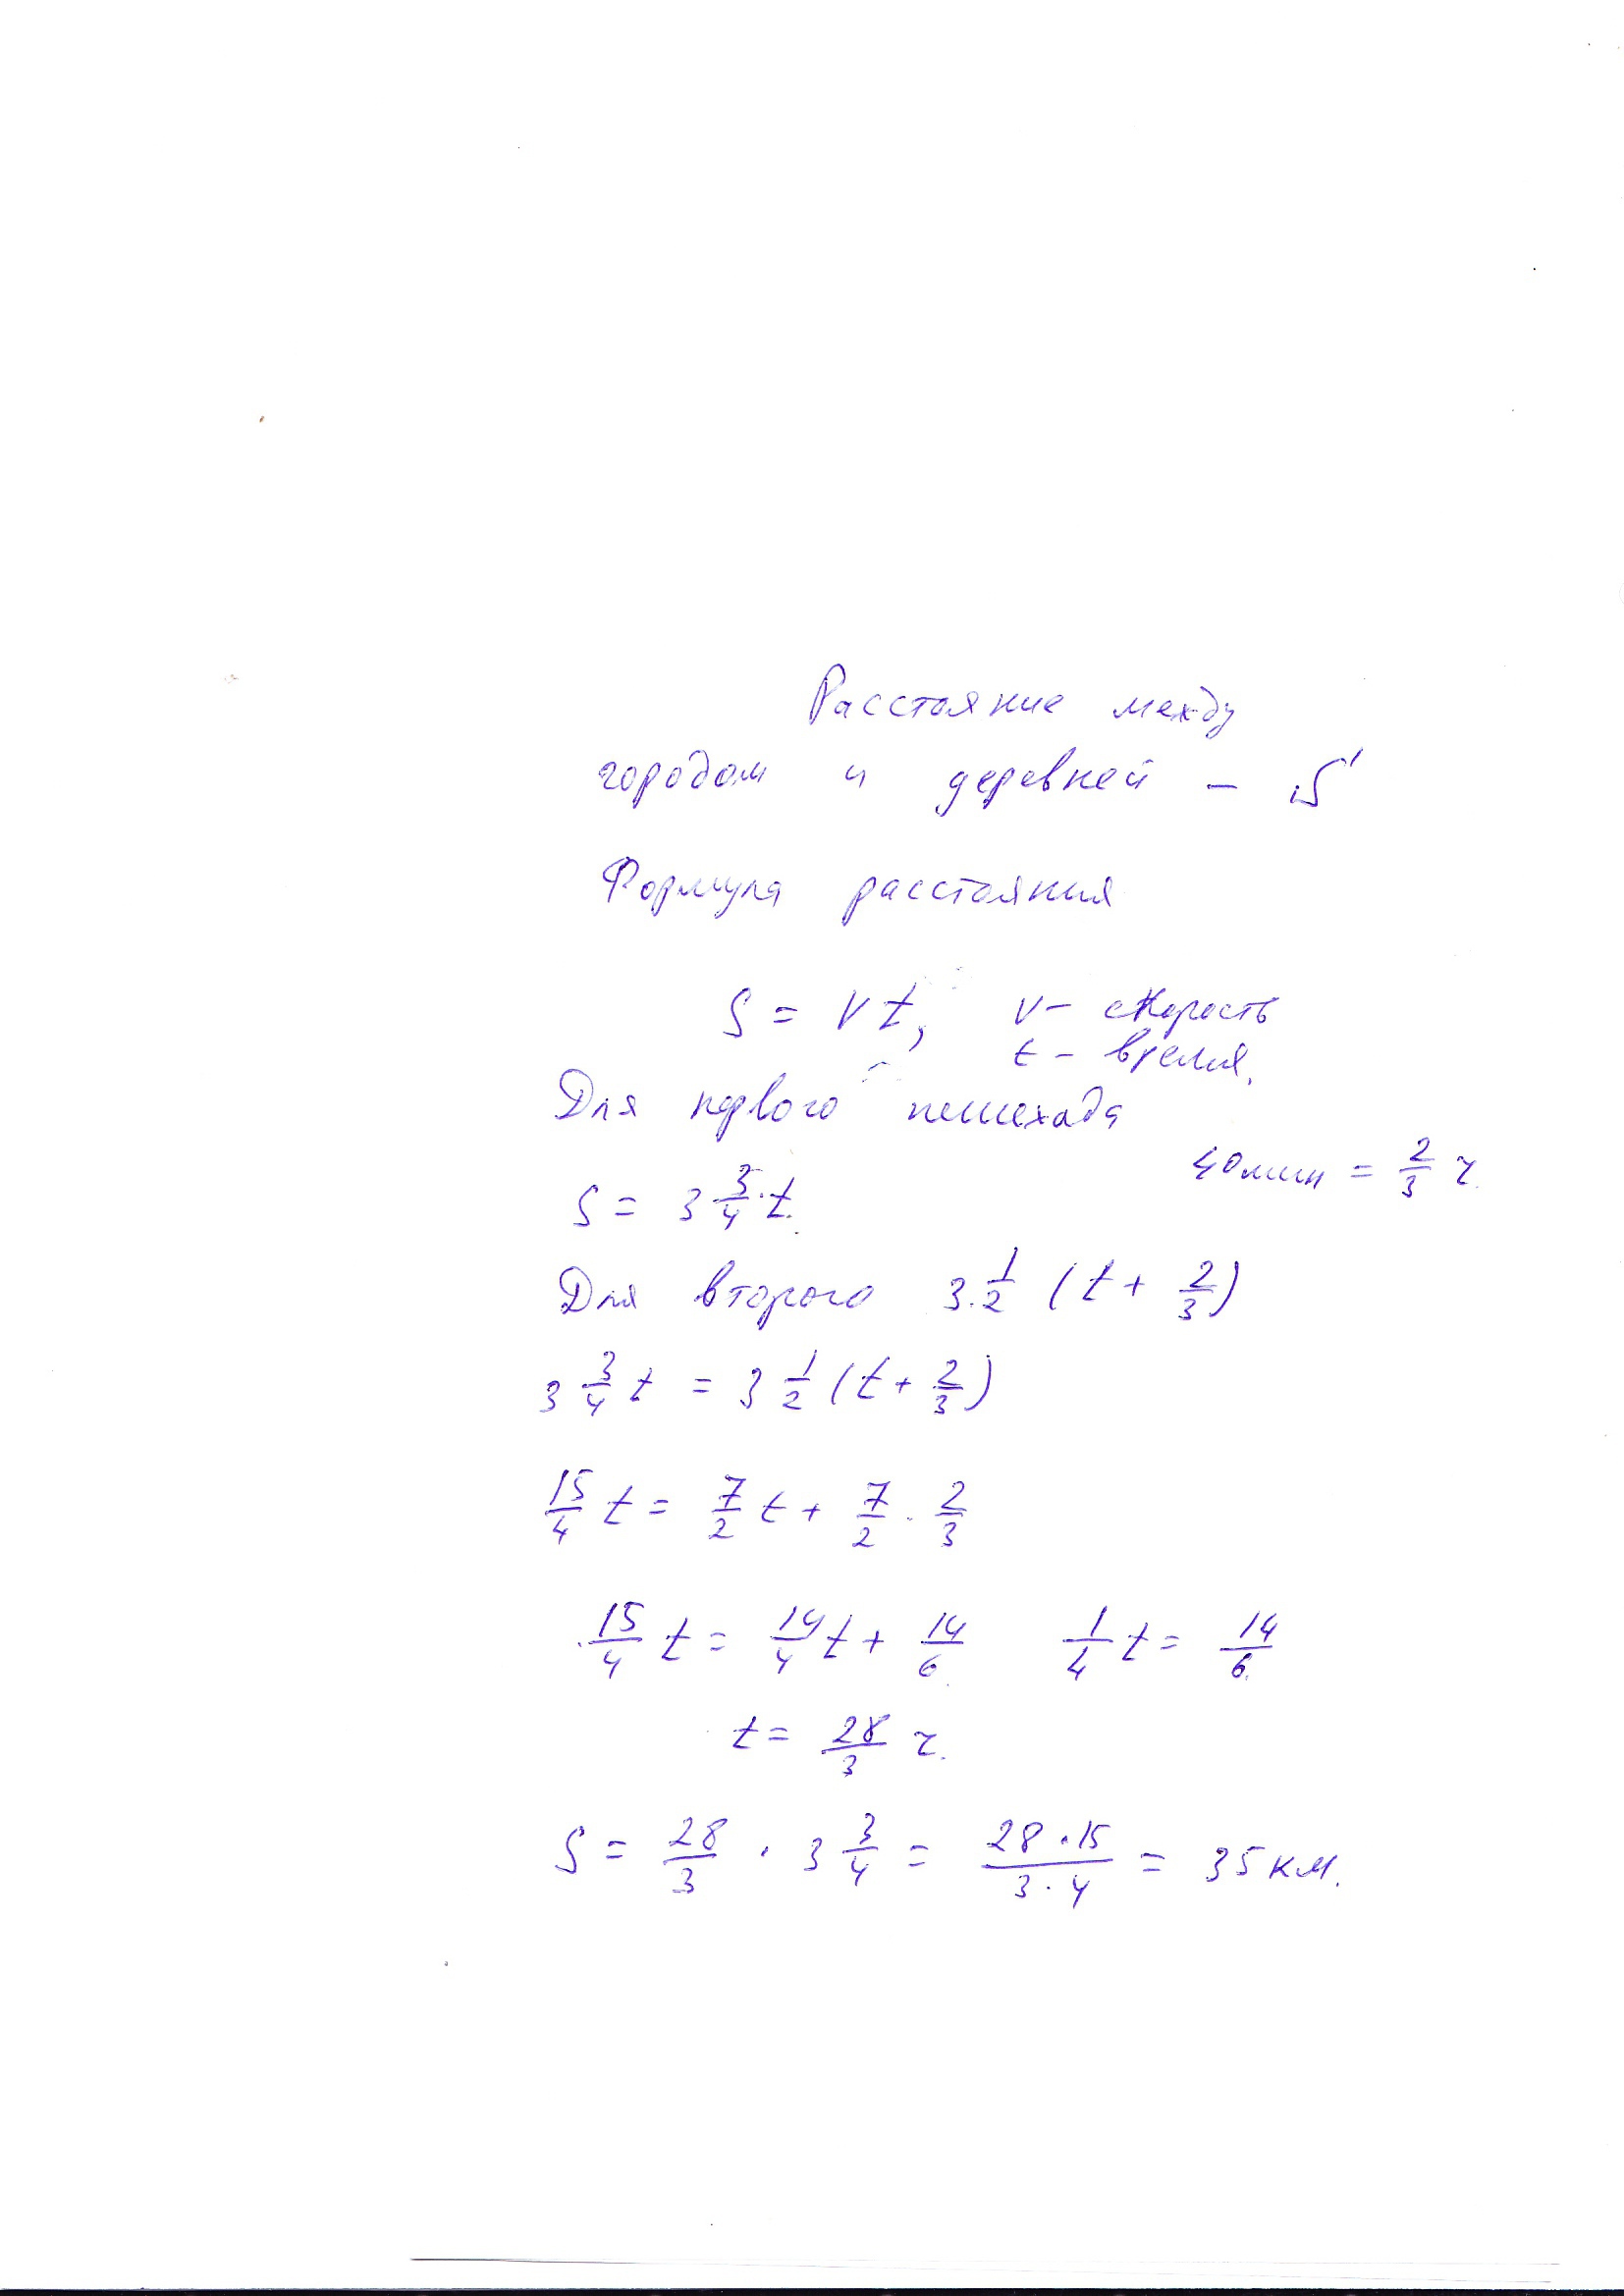 Расстояние между
городом и деревней – S
Формула расстояния
S = Vt, v – скорость
t – время.
Для первого пешехода
40 мин = 2/3 ч.
S = 3 3/4 · t.
Для второго 3 1/2 (t + 2/3)
3 3/4 t = 3 1/2 (t + 2/3)
15/4 t = 7/2 t + 7/2 · 2/3
15/4 t = 14/4 t + 14/6 1/4 t = 14/6
t = 28/3 ч.
S = 28/3 · 3 3/4 = 28·15/3·4 = 35 км.